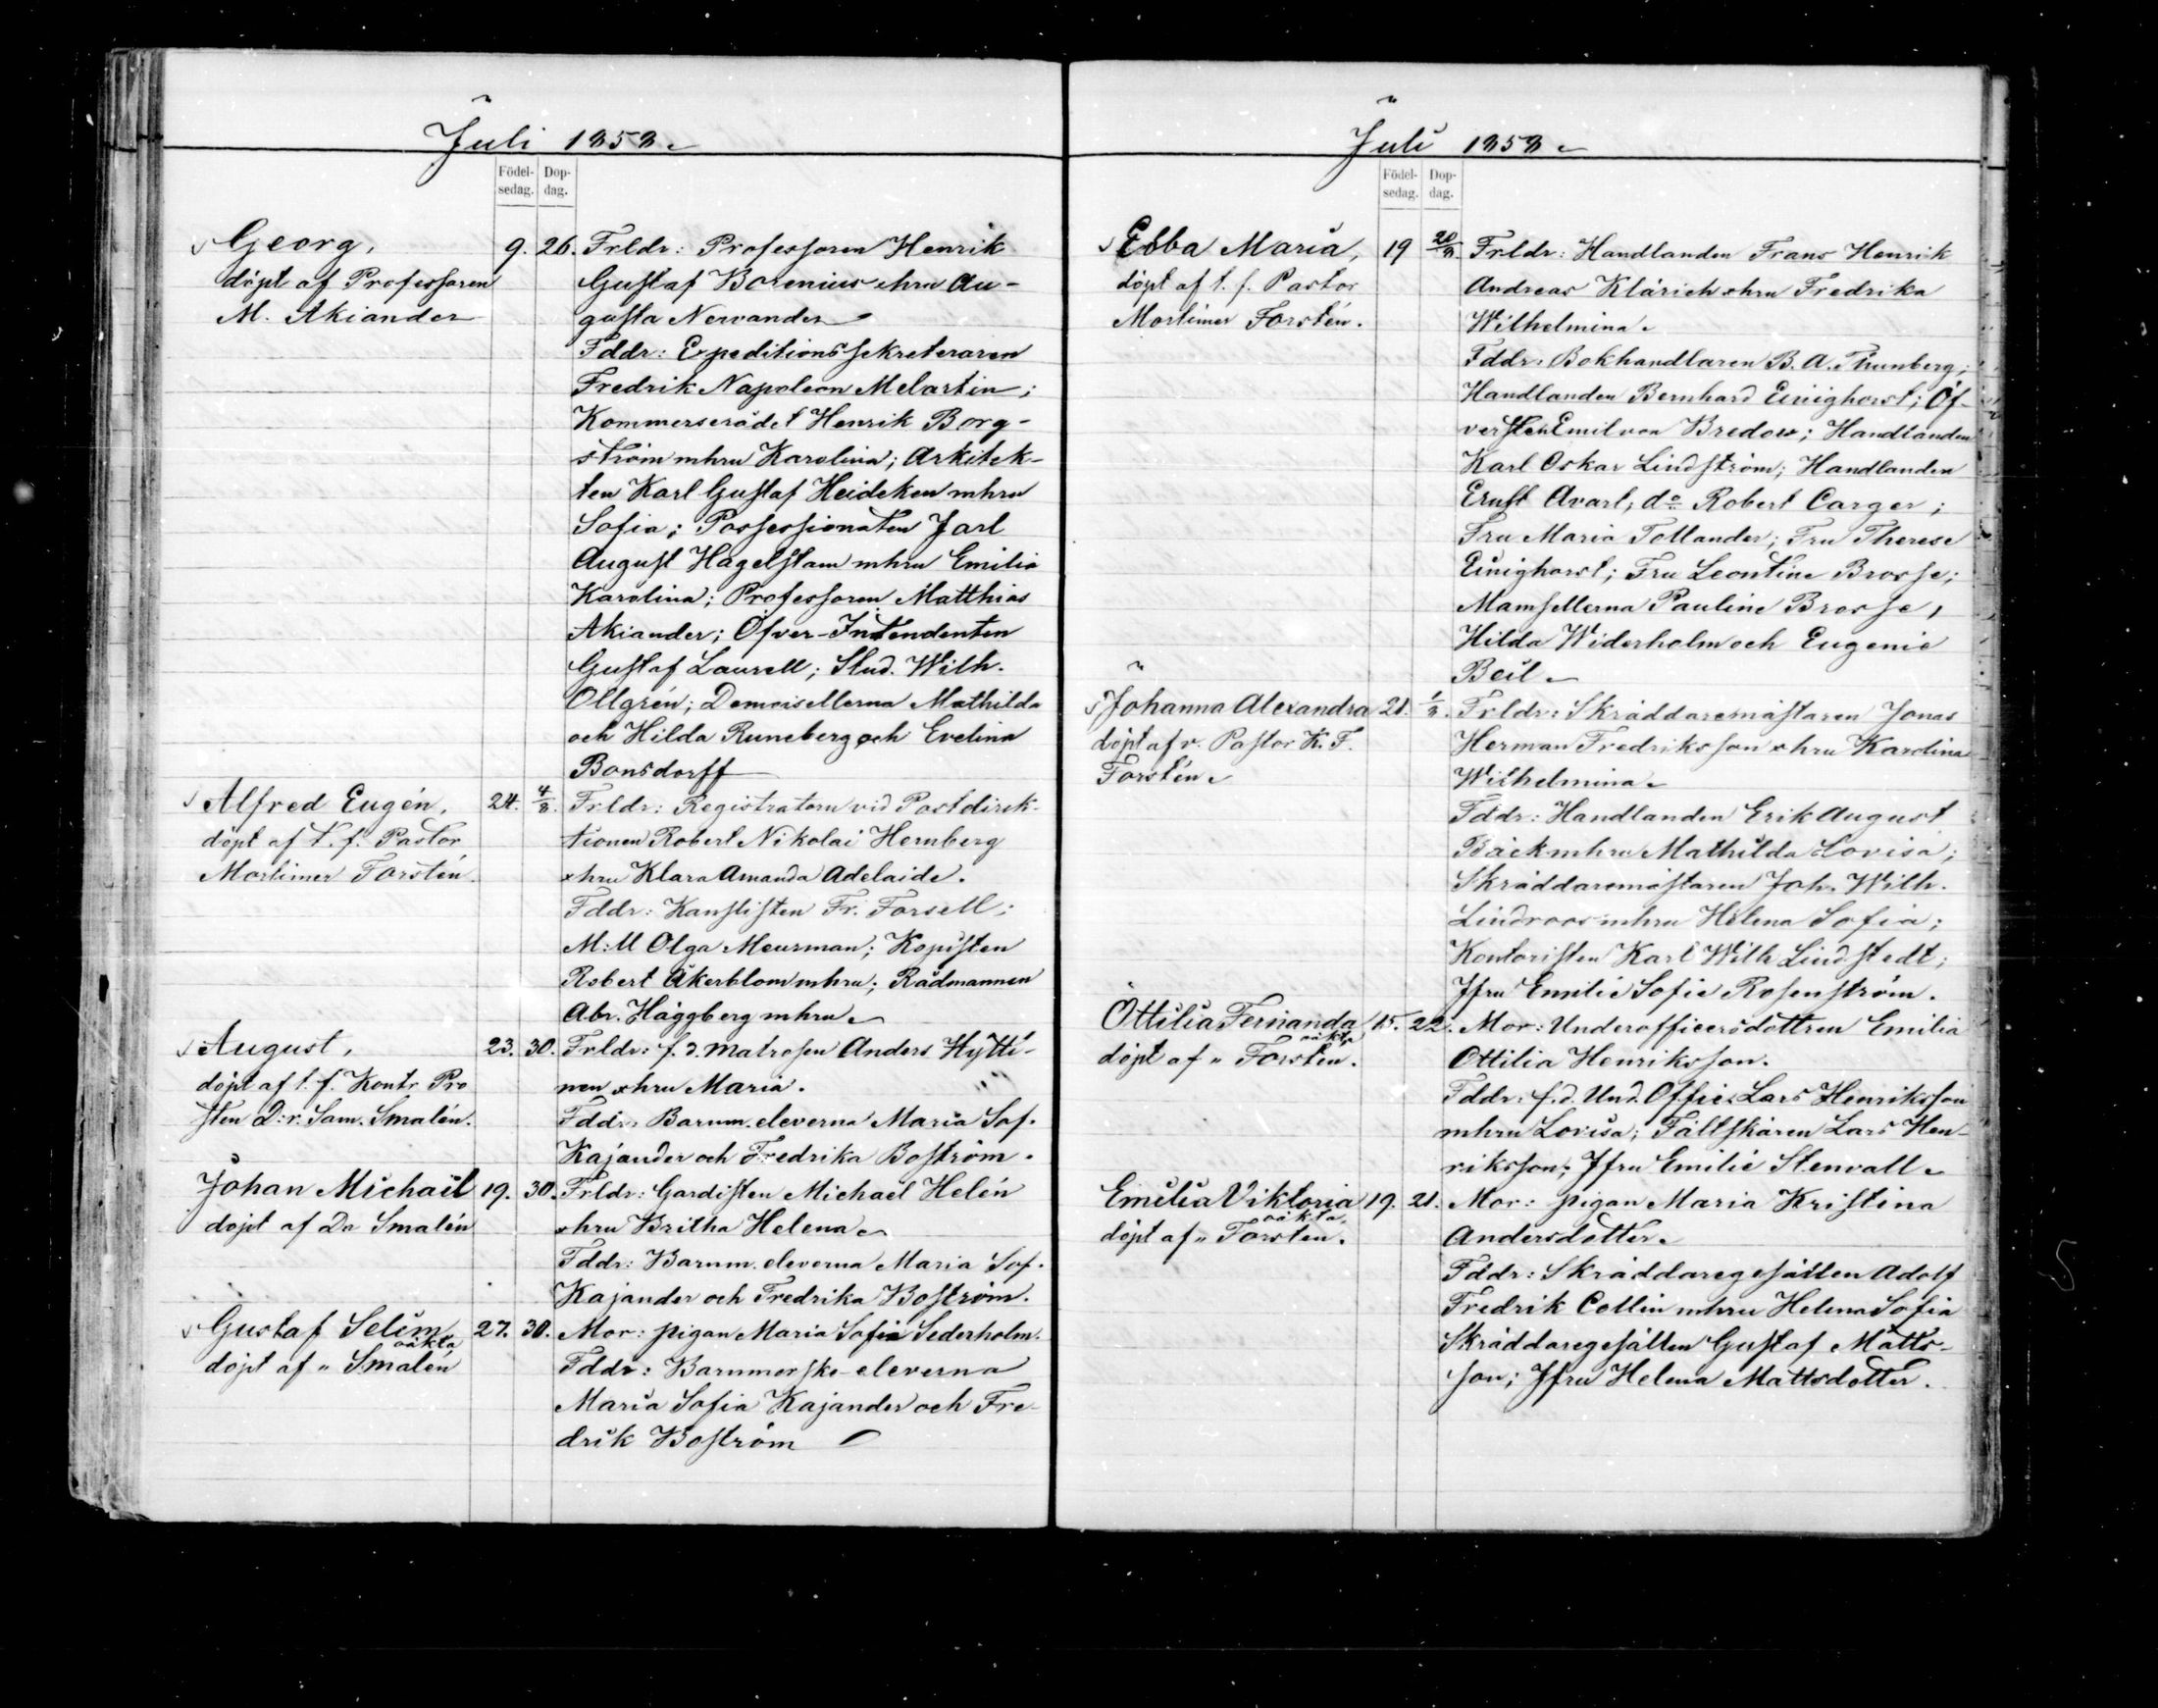 Juli 1858.
Födel-
sedag.
Dop-
dag.
Georg, 9. 26. Frldr: Professoren Henrik
döpt af Professoren Gustaf Borenius ohru Au-
M. Akiander gusta Nervander
Fddr: Expeditionssekreteraren
Fredrik Napoleon Melartin;
Kommerserådet Henrik Borg-
ström mhru Karolina; Arkitek-
ten Karl Gustaf Heideken mhru
Sofia; Possessionaten Jarl
August Hagelstam mhru Emilia
Karolina; Professoren Matthias
Akiander; Öfver-Intendenten
Gustaf Laurell; Stud. Wilh.
Ollgrén; Demoisellerna Mathilda
och Hilda Runeberg och Evelina
Bonsdorff
Alfred Eugén, 24. 4/8. Frldr: Registratorn vid Postdirek-
döpt af t. f. Pastor tionen Robert Nikolai Hernberg
Mortimer Forstén ohru Klara Amanda Adelaide.
Fddr: Kanslisten Fr. Forsell;
M:ll Olga Meurman; Kopisten
Robert Åkerblom mhru; Rådmannen
Abr. Häggberg mhru
August, 23. 30. Frldr: f. d. Matrosen Anders Hytti-
döpt af t. f. Kontr. Pro nen ohru Maria.
sten D:r. Sam. Smalén. Fddr: Barnm. eleverna Maria Sof.
Kajander och Fredrika Boström.
Johan Michaël 19. 30. Frldr: Gardisten Michaël Helén
döpt af Do Smalén ohru Britha Helena
Fddr: Barnm. eleverna Maria Sof.
Kajander och Fredrika Boström.
Gustaf Selim 27. 30. Mor: pigan Maria Sofia Sederholm.
oäkta,
döpt af " Smalén Fddr: Barnmorske-eleverna
Maria Sofia Kajander och Fre-
drik Boström
Juli 1858.
Födel-
sedag.
Dop-
dag.
Ebba Maria, 19 20/8. Frldr: Handlanden Frans Henrik
döpt af t. f. Pastor Andreas Klärich ohru Fredrika
Mortimer Forstén. Wilhelmina.
Fddr: Bokhandlaren B. A. Thunberg;
Handlanden Bernhard Einighorst; Öf-
versten Emil von Bredow; Handlanden
Karl Oskar Lindström; Handlanden
Ernst Avart, do Robert Carger;
Fru Maria Tollander; Fru Therese
Einighorst; Fru Leontine Brosse;
Mamsellerna Pauline Brosse,
Hilda Widerholm och Eugenie
Beil.
Johanna Alexandra 21. 1/8. Frldr: Skräddaremästaren Jonas
döpt af v. Pastor K. F. Herman Fredriksson ohru Karolina
Forstén. Wilhelmina.
Fddr: Handlanden Erik August
Bäck mhru Mathilda Lovisa;
Skräddaremästaren Joh. Wilh.
Lindroos mhru Helena Sofia;
Kontoristen Karl Wilh Lindstedt;
Jfru Emilie Sofie Rosenström.
Ottilia Fernanda 15. 22. Mor: Underofficersdottren Emilia
oäkta
döpt af " Forsten. Ottilia Henriksson.
Fddr: f. d. Und. Offic. Lars Henriksson
mhru Lovisa; Fältskären Lars Hen-
riksson; Jfru Emilie Stenvall.
Emilia Viktoria 19. 21. Mor: pigan Maria Kristina
oäkta,
döpt af " Forsten. Andersdotter.
Fddr: Skräddaregesällen Adolf
Fredrik Collin mhru Helena Sofia
Skräddaregesällen Gustaf Matts-
son; Jfru Helena Mattsdotter.